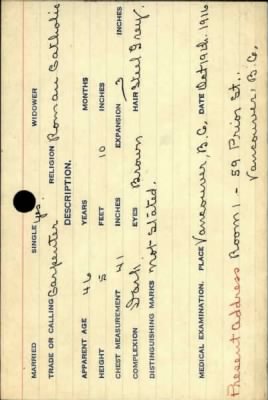 MARRIED SINGLE yes. WIDOWER
TRADE OR CALLING Carpenter RELIGION Roman Catholic
DESCRIPTION.
APPARENT AGE 46 YEARS MONTHS
HEIGHT 5 FEET 10 INCHES
CHEST MEASUREMENT 41 INCHES EXPANSION 3 INCHES
COMPLEXION Dark. EYES Brown HAIR Steel Grey.
DISTINGUISHING MARKS Not Stated.
MEDICAL EXAMINATION. PLACE Vancouver, B.C. DATE Oct 19th. 1916
Present Address Room 1 - 59 Prior St.,
Vancouver, B.C.